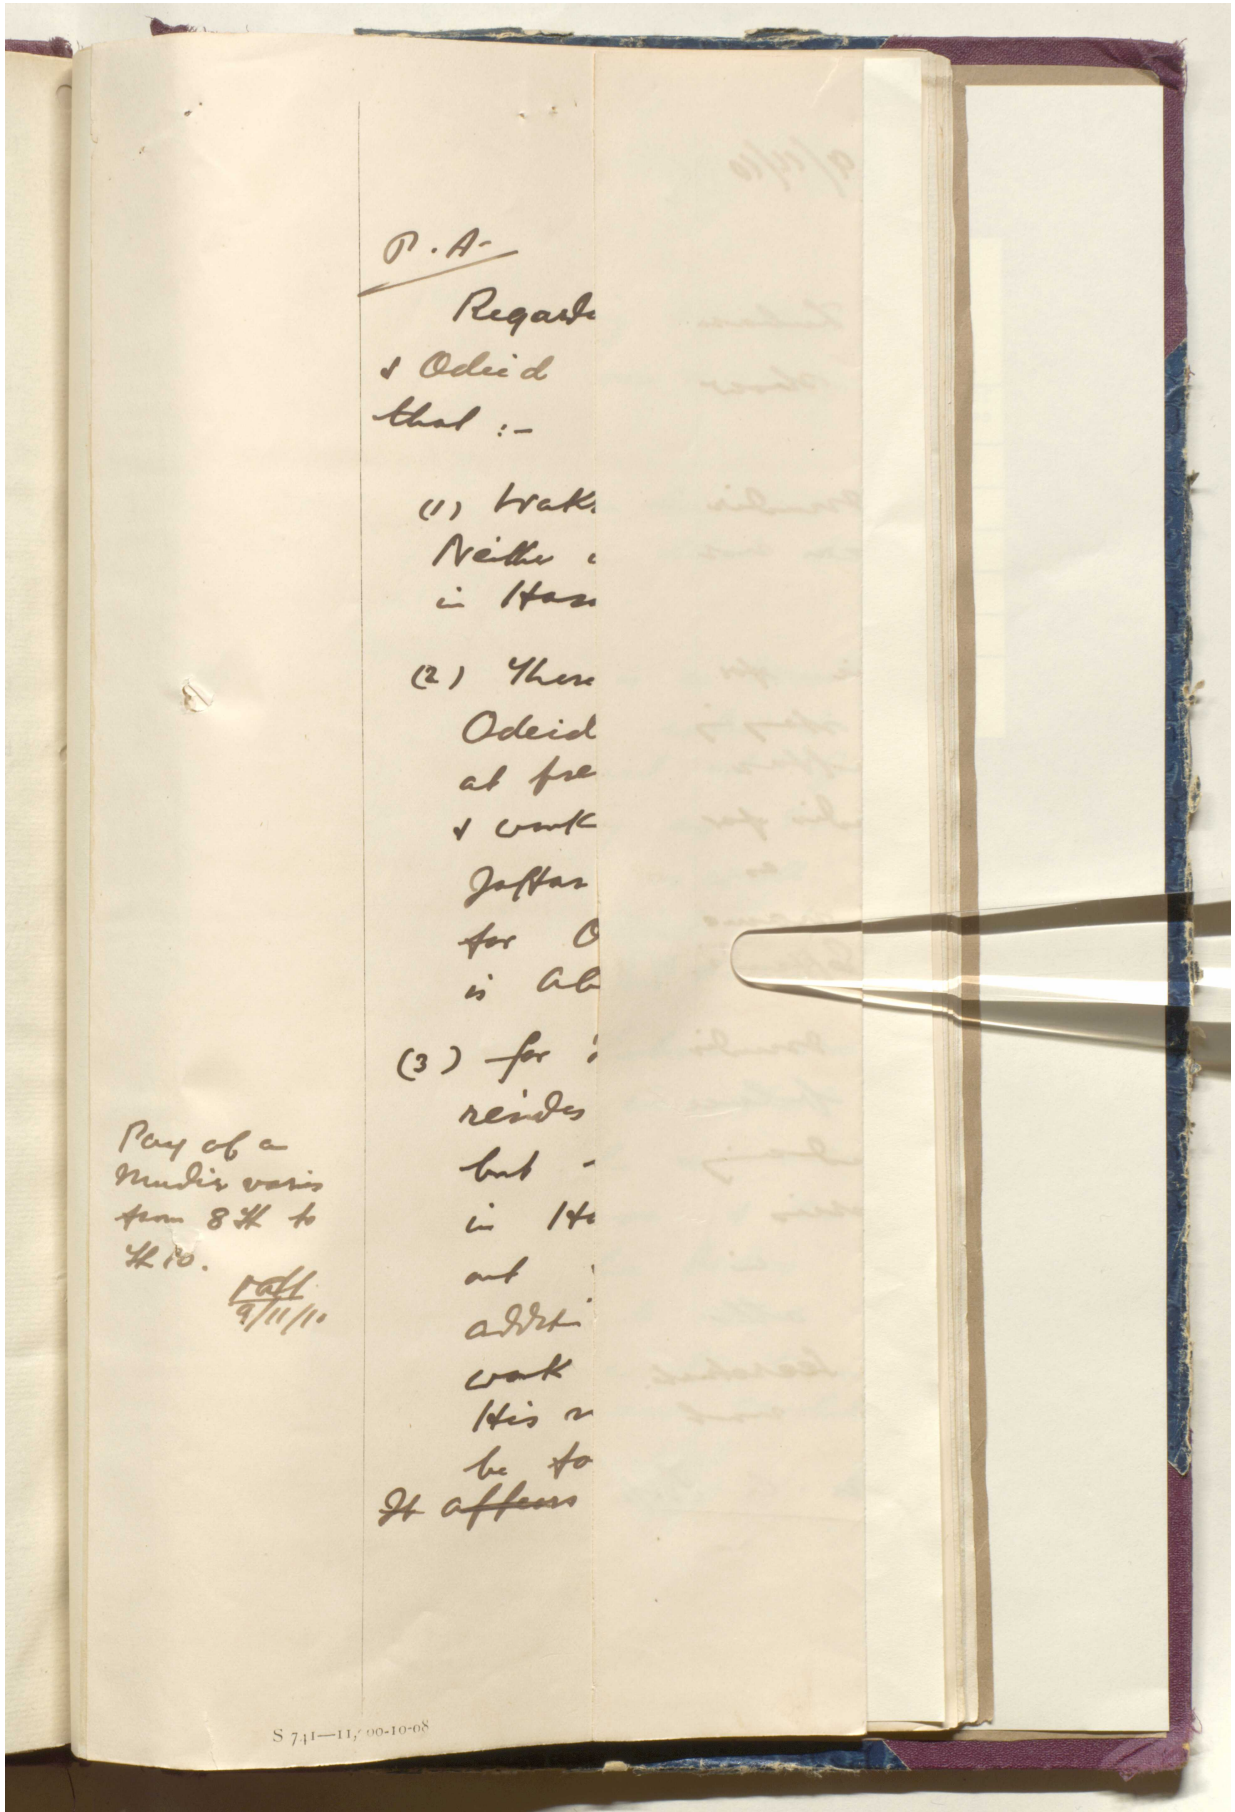 P. A.
Regarde
& Odeid
that :-
(1) Wak
Neither
in Has
(2) There
Odeid
at pre
& work
Jaffar
for O
is Ab
(3) for
resides
but
in H
out
additi
work
His
be fo
It appears
Pay of a
Mudir varies
from £8 to
£10.
9/11/10
S 741—11, 00-10-08